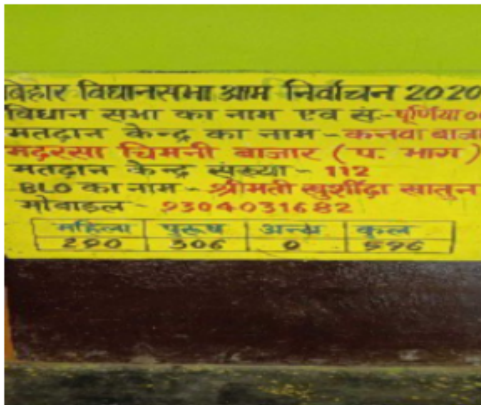 बिहार विधानसभा आम निर्वाचन 2020
विधान सभा का नाम एवं सं.- पूर्णिया
मतदान केन्द्र का नाम - कनवा बाजा
मदरसा चिमनी बाजार (प. भाग)
मतदान केन्द्र संख्या - 112
BLO का नाम - श्रीमती खुर्शीदा खातुन
मोबाइल - 9304031682
महिला पुरूष अन्य कुल
290 306 0 596